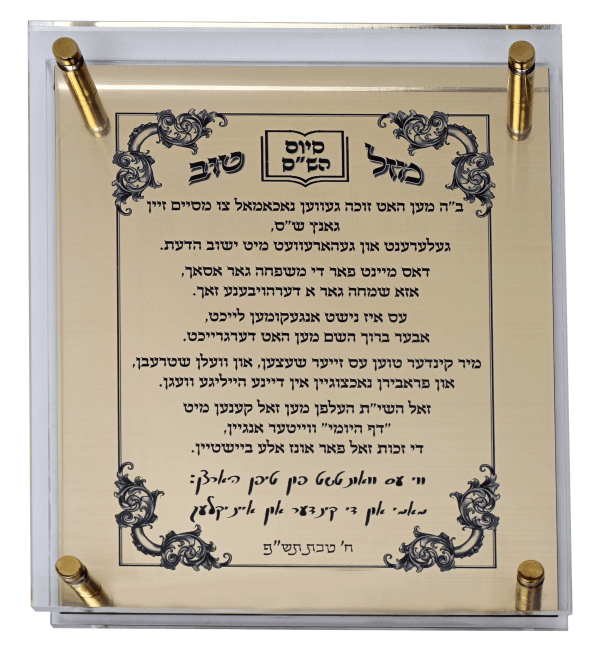 מזל טוב
סיום
הש"ס
ב"ה מען האט זוכה געווען נאכאמאל צו מסיים זיין
גאנץ ש"ס,
געלערענט און געהארעוועט מיט ישוב הדעת.
דאס מיינט פאר די משפחה גאר אסאך,
אזא שמחה גאר א דערהויבענע זאך.
עס איז נישט אנגעקומען לייכט,
אבער ברוך השם מען האט דערגרייכט.
מיר קינדער טוען עס זייער שעצען, און וועלן שטרעבן,
און פראבירן נאכצוגיין אין דיינע הייליגע וועגן.
זאל השי"ת העלפן מען זאל קענען מיט
"דף היומי" ווייטער אנגיין,
די זכות זאל פאר אונז אלע ביישטיין.
ווי עס וואונטשט פון טיפן הארצן:
מאמי און די קינדער און אייניקלעך
ח' טבת תש"פ